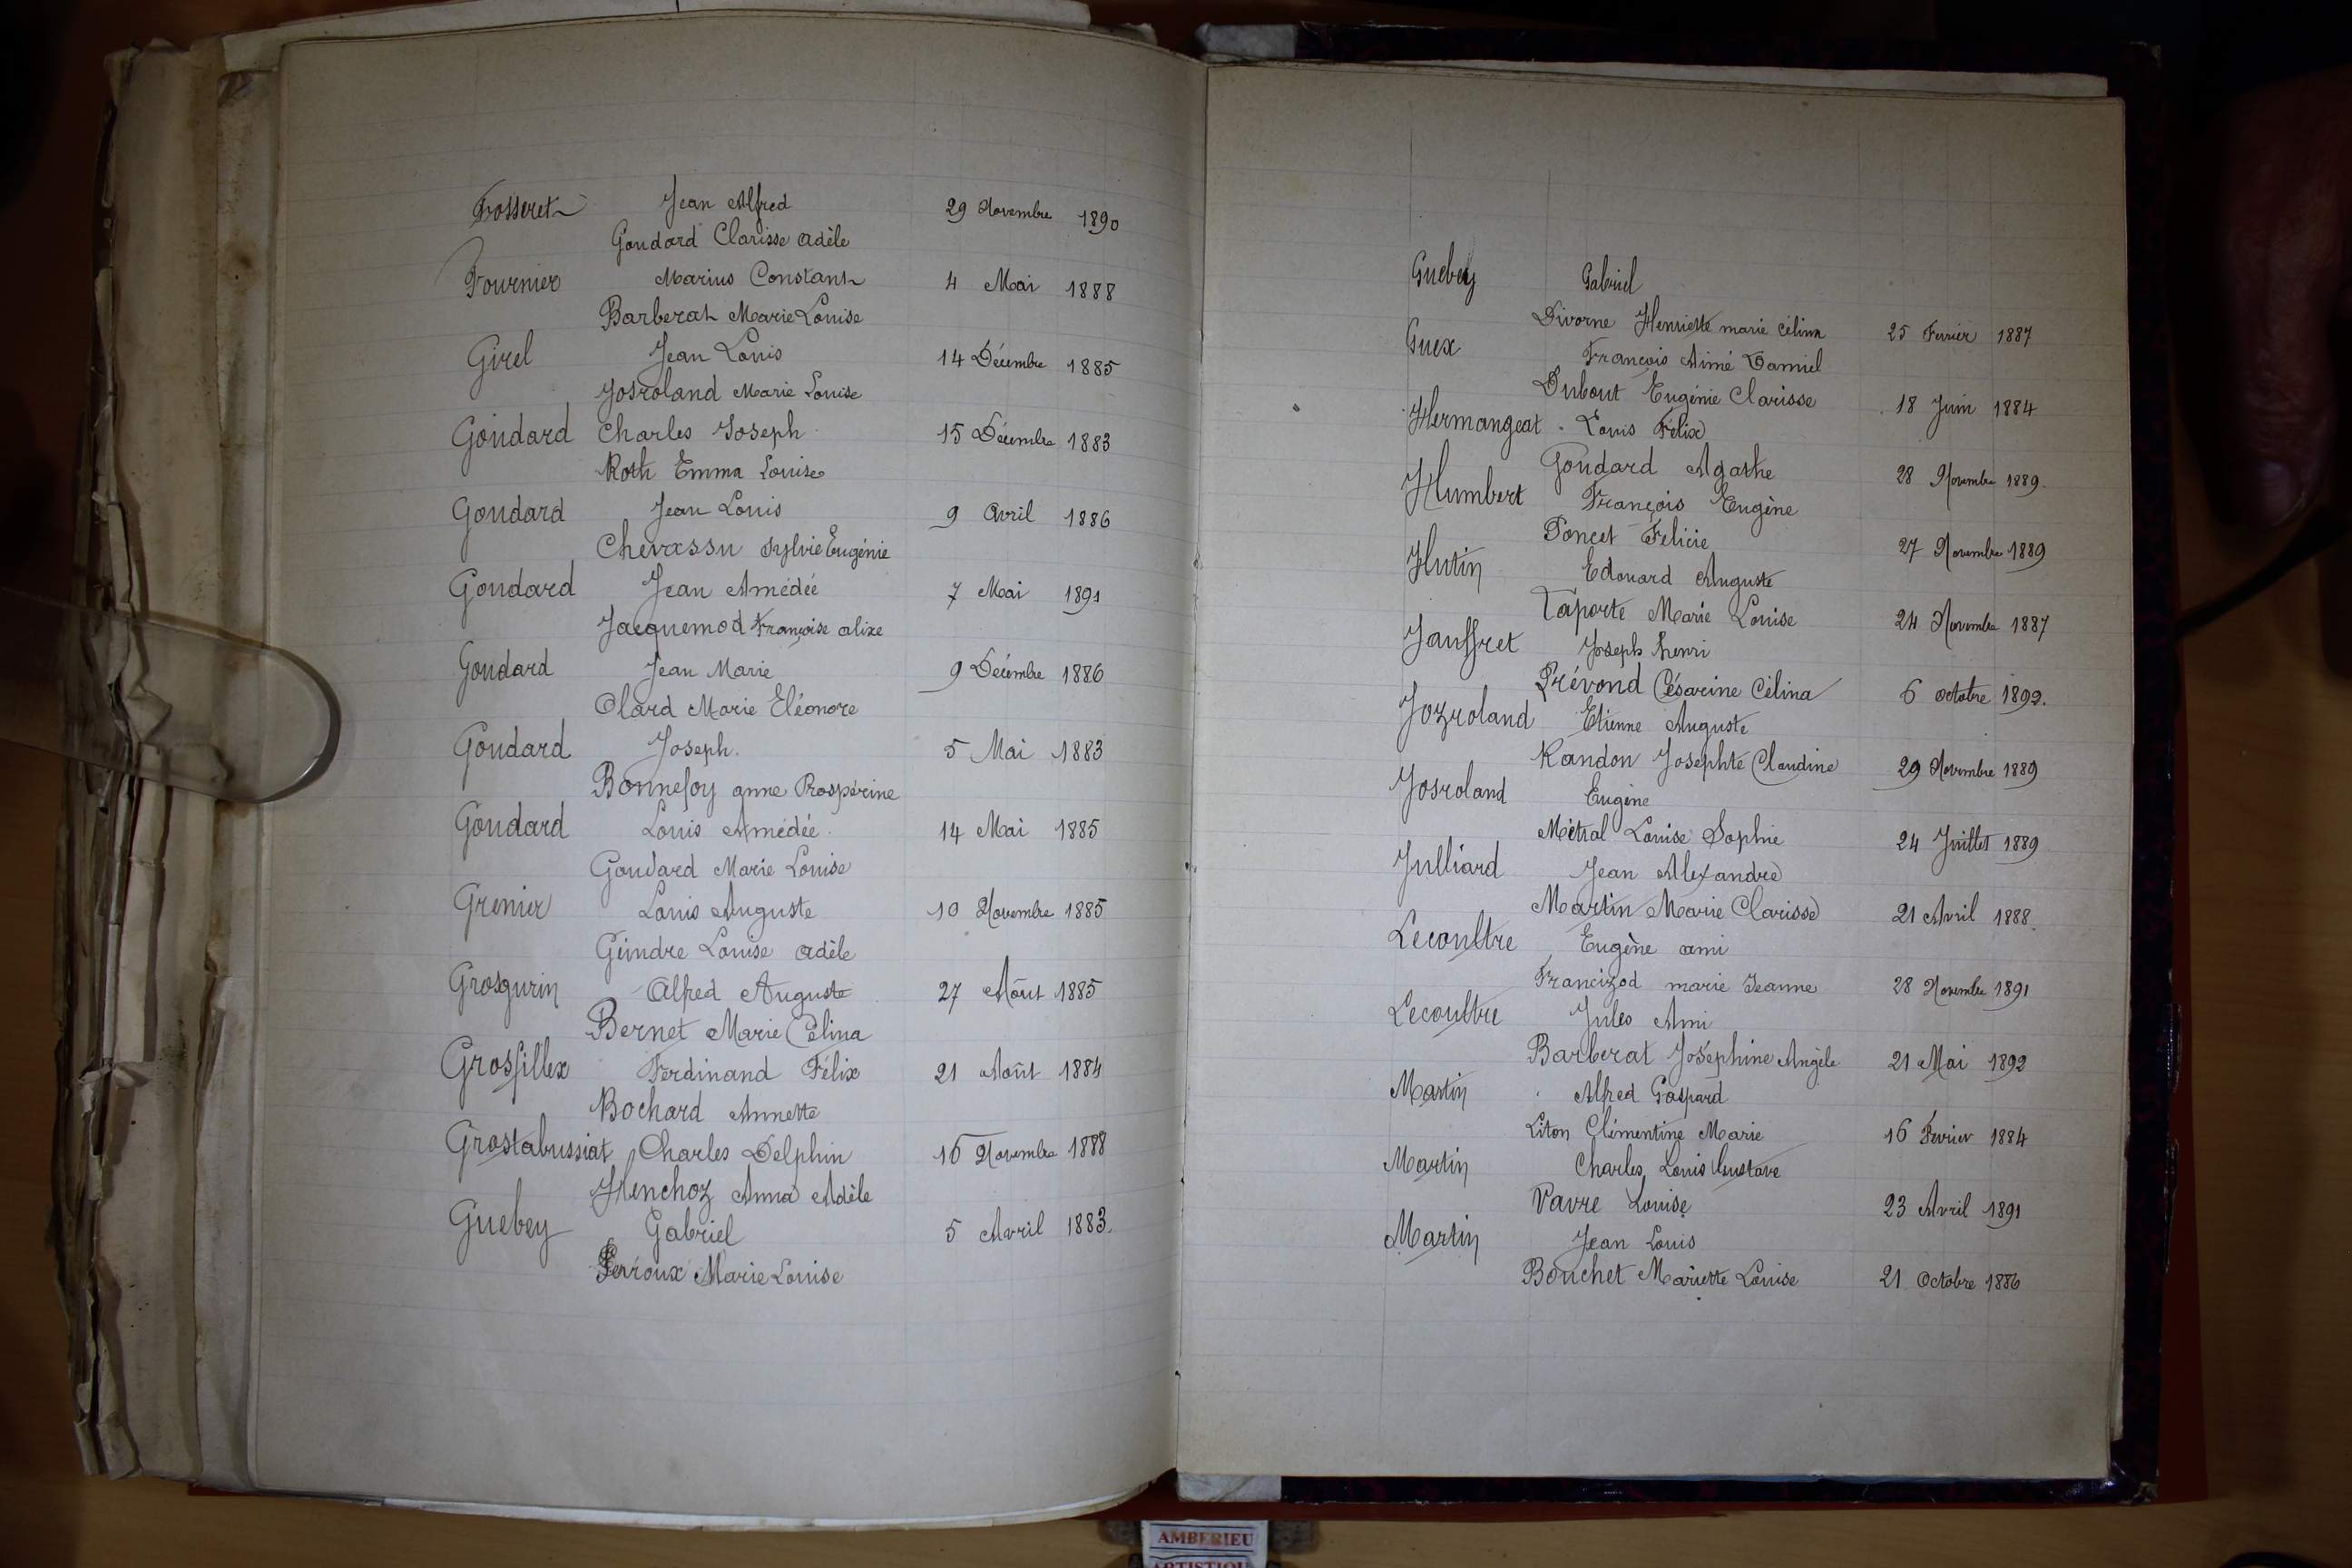 Fosseret Jean Alfred 29 Novembre 1890
Goudard Clarisse Adèle
Fournier Marius Constant 4 Mai 1888
Barberat Marie Louise
Girel Jean Louis 14 Décembre 1885
Josroland Marie Louise
Goudard Charles Joseph 15 Décembre 1883
Roth Emma Louise
Goudard Jean Louis 9 Avril 1886
Chevassu Sylvie Eugénie
Goudard Jean Amédée 7 Mai 1891
Jacquemod Françoise alixe
Goudard Jean Marie 9 Décembre 1886
Olard Marie Eléonore
Goudard Joseph. 5 Mai 1883
Bonnefoy anne Prospérine
Goudard Louis Amédée. 14 Mai 1885
Goudard Marie Louise
Grenier Louis Auguste 10 Novembre 1885
Geindre Louise Adèle
Grosgurin Alfred Auguste 27 Août 1885
Bernet Marie Célina
Grosfillex Ferdinand Félix 21 Août 1884
Bochard Annette
Grostabussiat Charles Delphin 16 Novembre 1888
Henchoz Anna Adèle
Guebey Gabriel 5 Avril 1883.
Perroux Marie Louise
Guebey Gabriel
Divorne Henriette marie célina 25 Fevrier 1887
Guex François Aimé Damiel
Dubout Eugénie Clarisse 18 Juin 1884
Hermangeat Louis Félix
Goudard Agathe 28 Novembre 1889.
Humbert François Eugène
Poncet Félicie 27 Novembre 1889
Hutin Edouard Auguste
Laporte Marie Louise 24 Novembre 1887
Jauffret Joseph henri
Prévond Césarine Célina 6 octobre 1892.
Jozroland Etienne Auguste
Randon Josephte Claudine 29 Novembre 1889
Josroland Eugène
Métral Louise Sophie 24 Juillet 1889
Julliard Jean Alexandre
Martin Marie Clarisse 21 Avril 1888.
Lecoultre Eugène ami
Francizod marie Jeanne 28 Novembre 1891
Lecoultre Jules Ami
Barberat Joséphine Angèle 21 Mai 1892
Martin Alfred Gaspard
Liton Clémentine Marie 16 Fevrier 1884
Martin Charles Louis Gustave
Vavre Louise 23 Avril 1891
Martin Jean Louis
Bouchet Mariette Louise 21 Octobre 1886
AMBERIEU